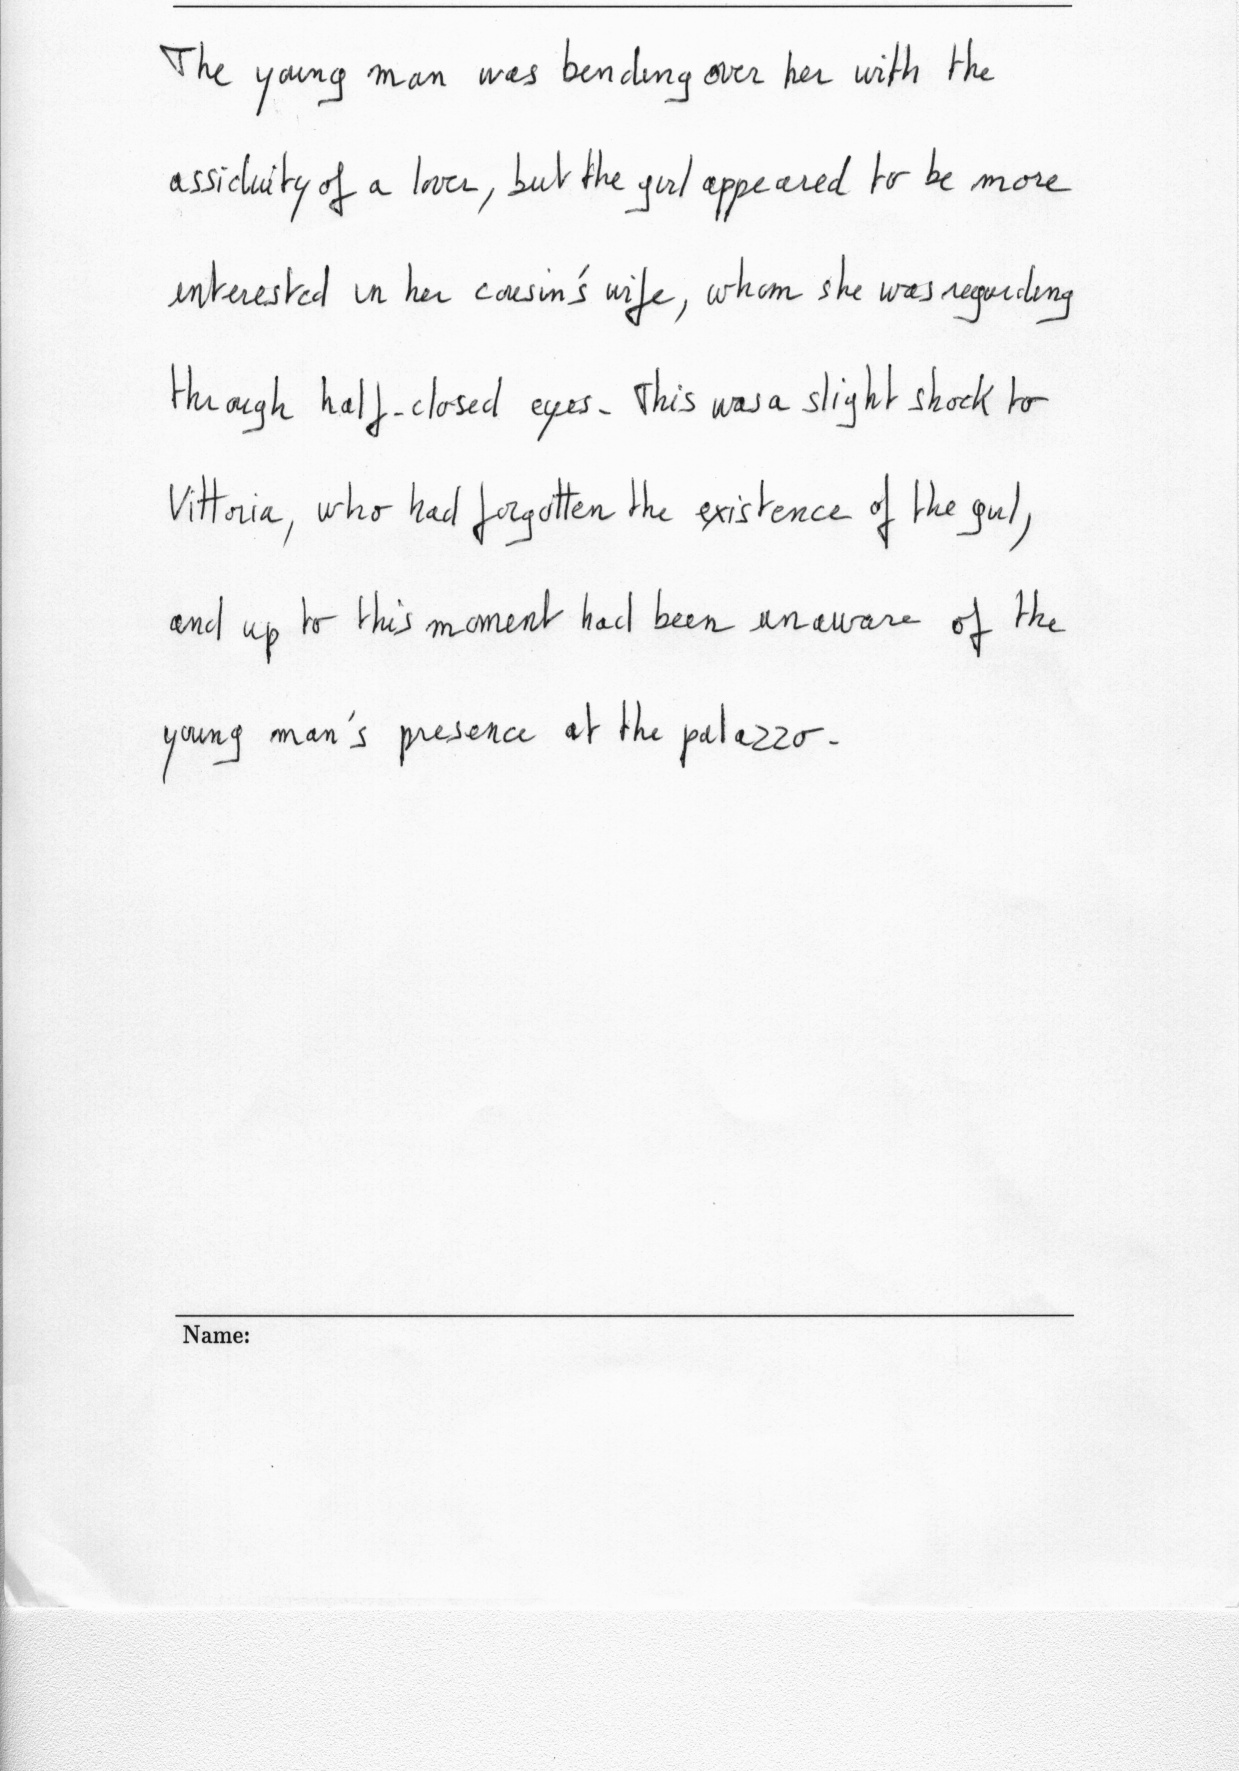 The young man was bending over her with the
assiduity of a lover, but the girl appeared to be more
interested in her cousin's wife, whom she was regarding
through half-closed eyes. This was a slight shock to
Vittoria, who had forgotten the existence of the girl,
and up to this moment had been unaware of the
young man's presence at the palazzo.
Name: